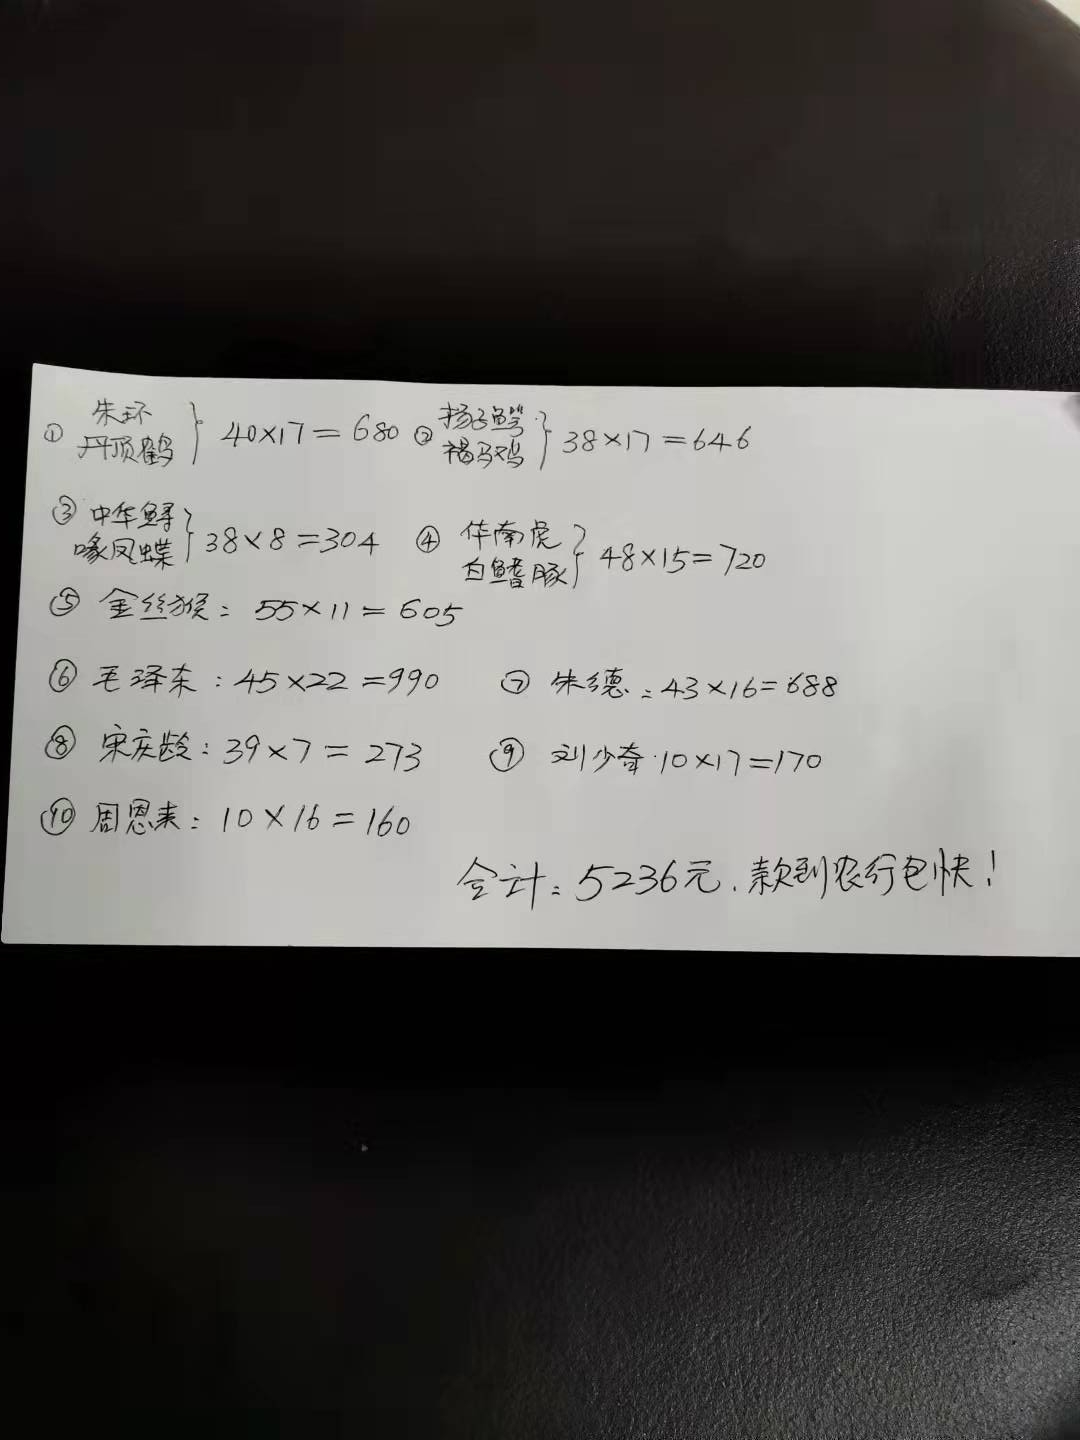 ① 朱环 丹顶鹤 } 40×17=680 ② 扬子鳄 褐马鸡 } 38×17=646
③ 中华鲟 喙凤蝶 } 38×8=304 ④ 华南虎 白鳍豚 } 48×15=720
⑤ 金丝猴: 55×11=605
⑥ 毛泽东:45×22=990 ⑦ 朱德:43×16=688
⑧ 宋庆龄:39×7=273 ⑨ 刘少奇·10×17=170
⑩ 周恩来:10×16=160
合计:5236元.款到农行包快!